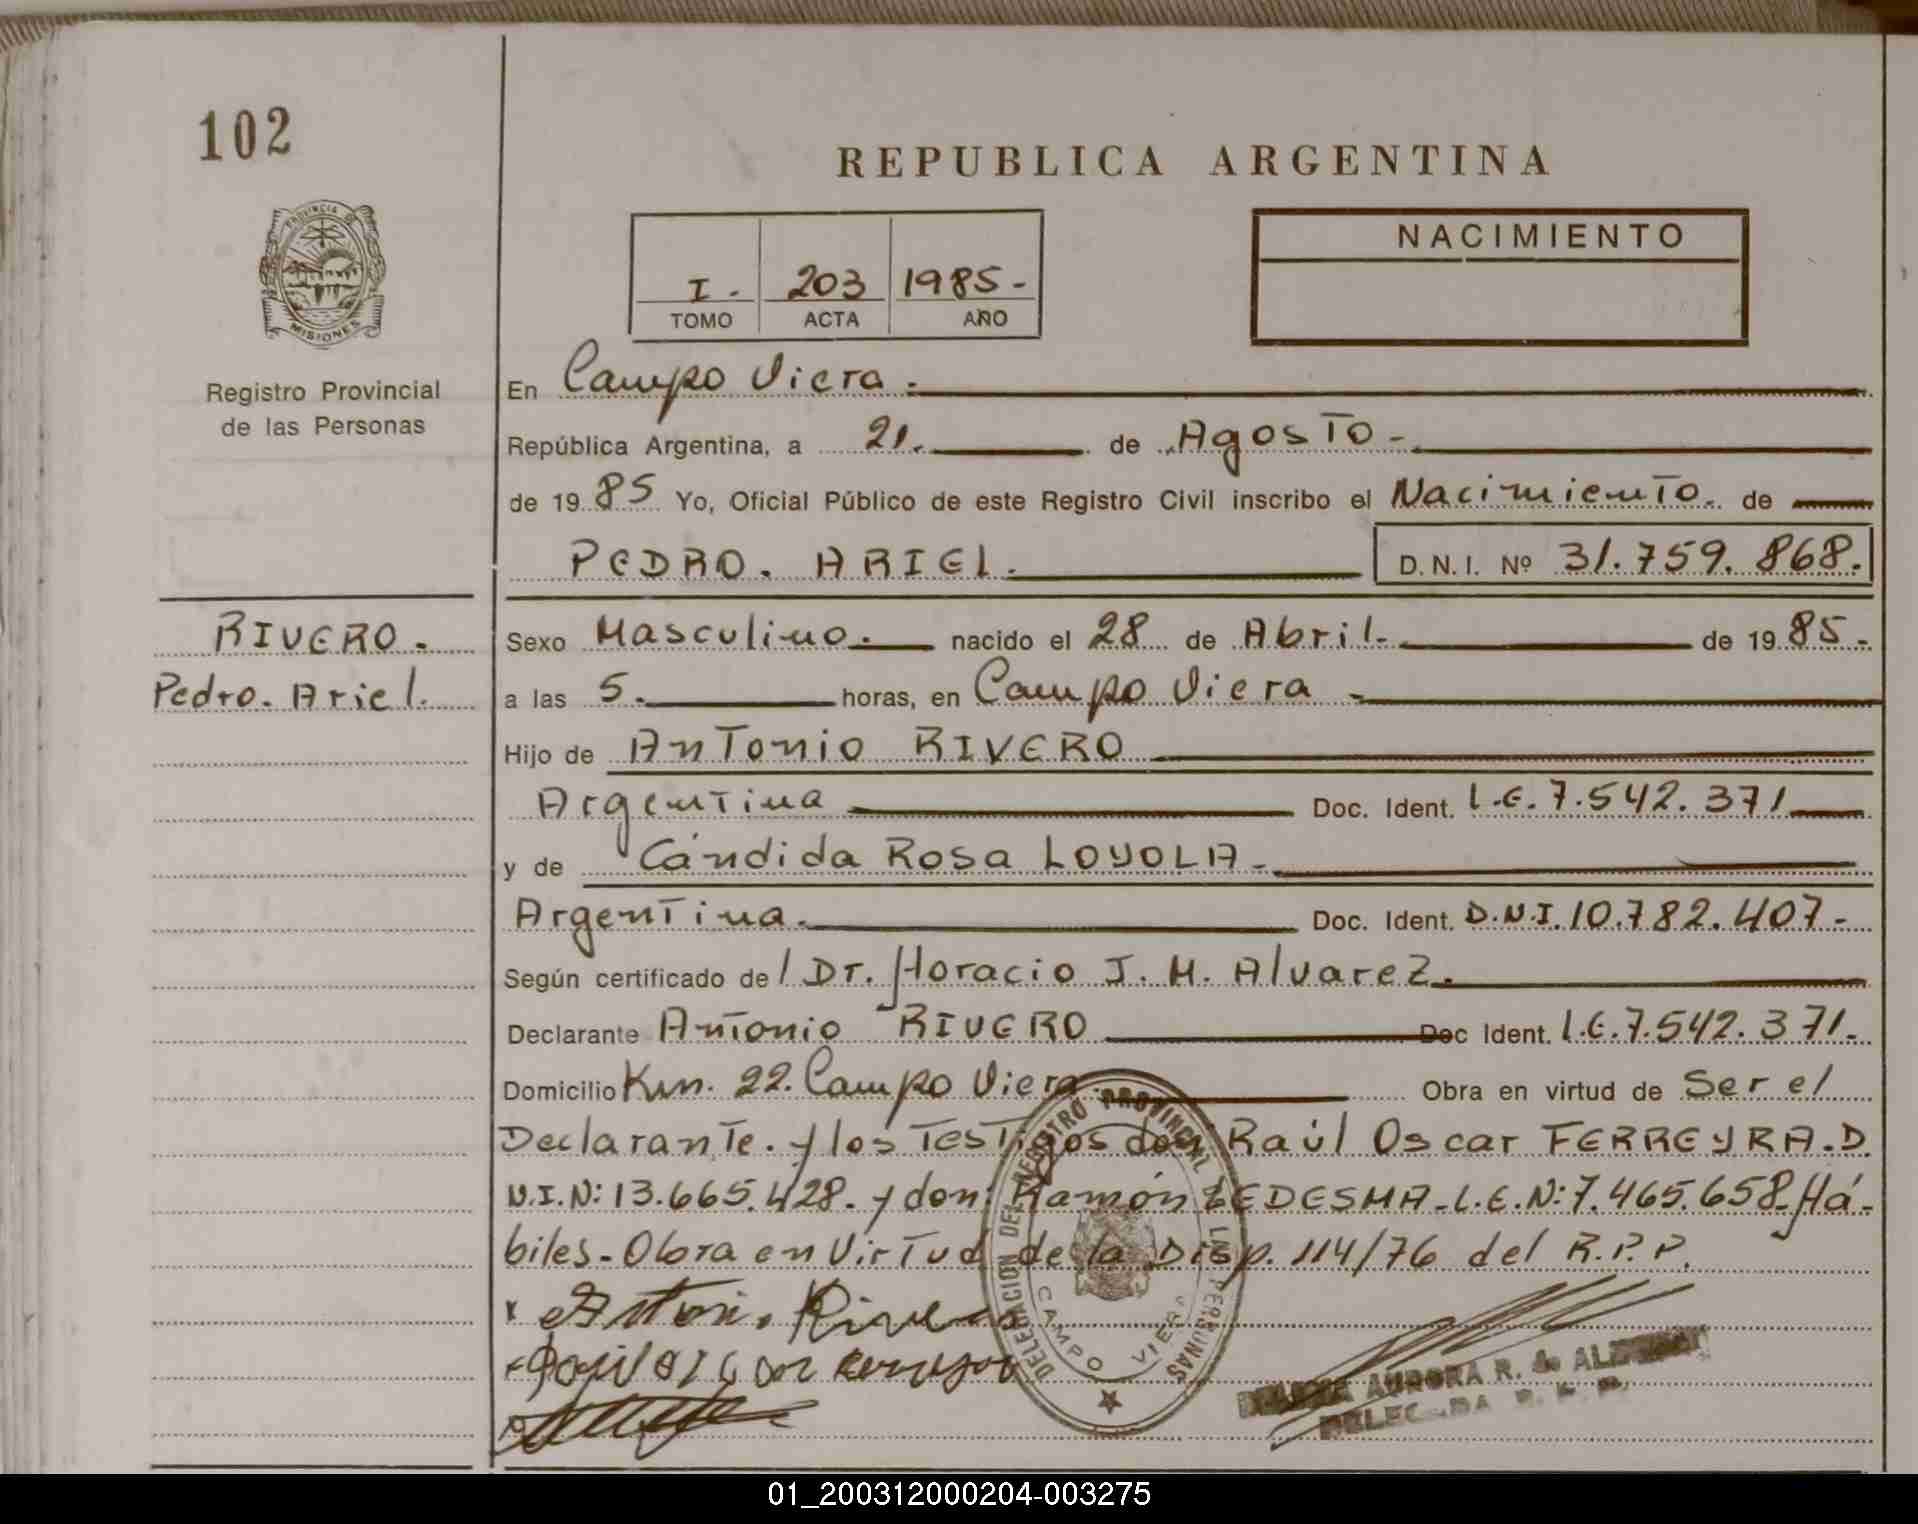 102
REPUBLICA ARGENTINA
PROVINCIA DE
MISIONES
Registro Provincial
de las Personas
I. 203 1985.-
TOMO ACTA AÑO
NACIMIENTO
En Campo Viera.
República Argentina, a 21. de Agosto.-
de 1985 Yo, Oficial Público de este Registro Civil inscribo el Nacimiento. de
PEDRO. ARIEL. D.N.I. Nº 31.759.868.
RIVERO.
Pedro. Ariel.
Sexo Masculino. nacido el 28 de Abril.- de 1985.-
a las 5. horas, en Campo Viera.
Hijo de Antonio RIVERO
Argentina Doc. Ident. L.E.7.542.371
y de Cándida Rosa LOYOLA.
Argentina. Doc. Ident. D.N.I.10.782.407-
Según certificado del Dr. Horacio J. M. Alvarez.
Declarante Antonio RIVERO Doc Ident. L.E.7.542.371.-
Domicilio Km. 22. Campo Viera. Obra en virtud de Ser el
Declarante. y los Testigos don: Raúl Oscar FERREYRA. D.
N.I.N: 13.665.428. y don: Ramón LEDESMA-L.E.N:7.465.658-Há-
biles-Obra en Virtud de la Disp. 114/76 del R.P.P.
x Rivero
DELEGACION DEL REGISTRO PROVINCIAL DE LAS PERSONAS
CAMPO VIERA
AURORA R. de
DELEGADA R. P. P.
01_200312000204-003275